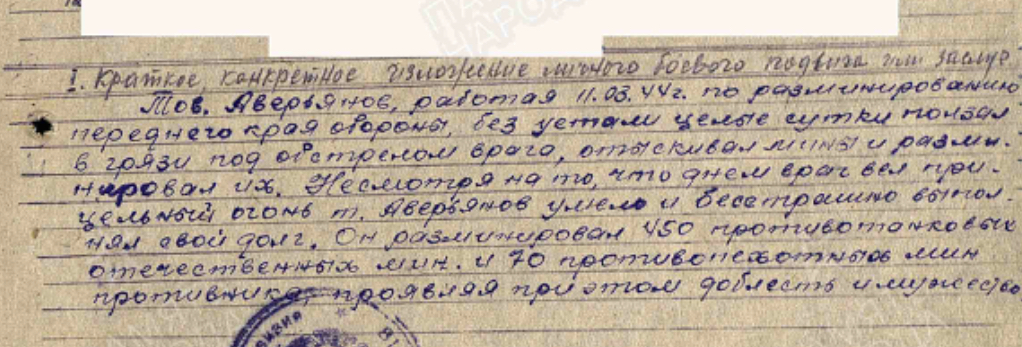 I. Краткое, конкретное изложение личного боевого подвига или заслуг
Тов. Аверьянов, работая 11.03.44г. по разминированию
переднего края обороны, без устали целые сутки ползал
в грязи под обстрелом врага, отыскивал мины и разми-
нировал их. Несмотря на то, что днем враг вел при-
цельный огонь т. Аверьянов умело и бесстрашно выпол-
нял свой долг. Он разминировал 450 противотанковых
отечественных мин. и 70 противопехотных мин
противника, проявляя при этом доблесть и мужество